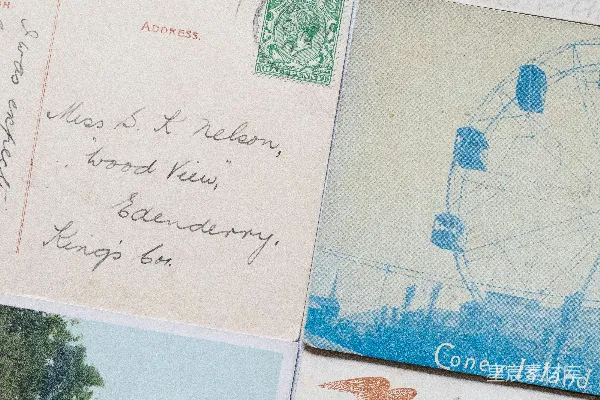 ADDRESS.
Miss S. K Nelson,
"Wood View",
Edenderry.
King's Co.
I was expect
Coney Island